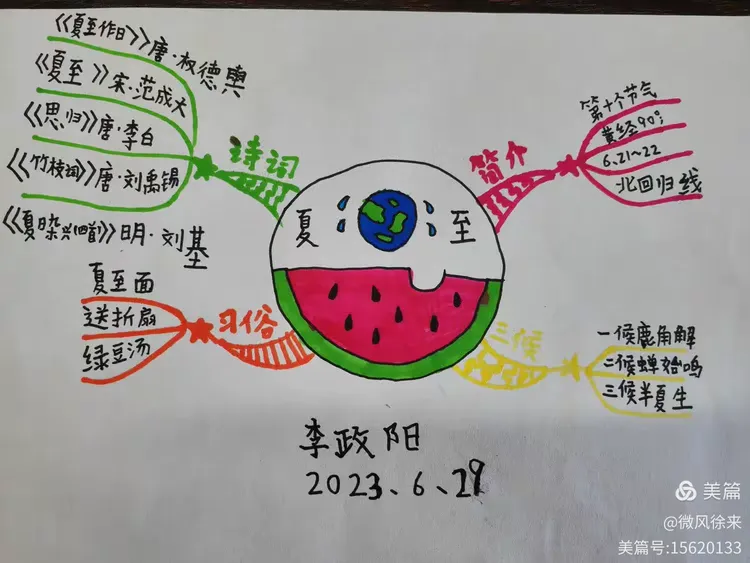 《夏至作日》唐·权德舆
《夏至》宋·范成大
《思归》唐·李白
《竹枝词》唐·刘禹锡
《夏日杂兴(四首)》明·刘基
诗词
夏至面
送折扇
绿豆汤
习俗
夏 至
简介
第十个节气
黄经90°
6.21~22
北回归线
三候
一候鹿角解
二候蝉始鸣
三候半夏生
李政阳
2023、6、19
美篇
@微风徐来
美篇号:15620133